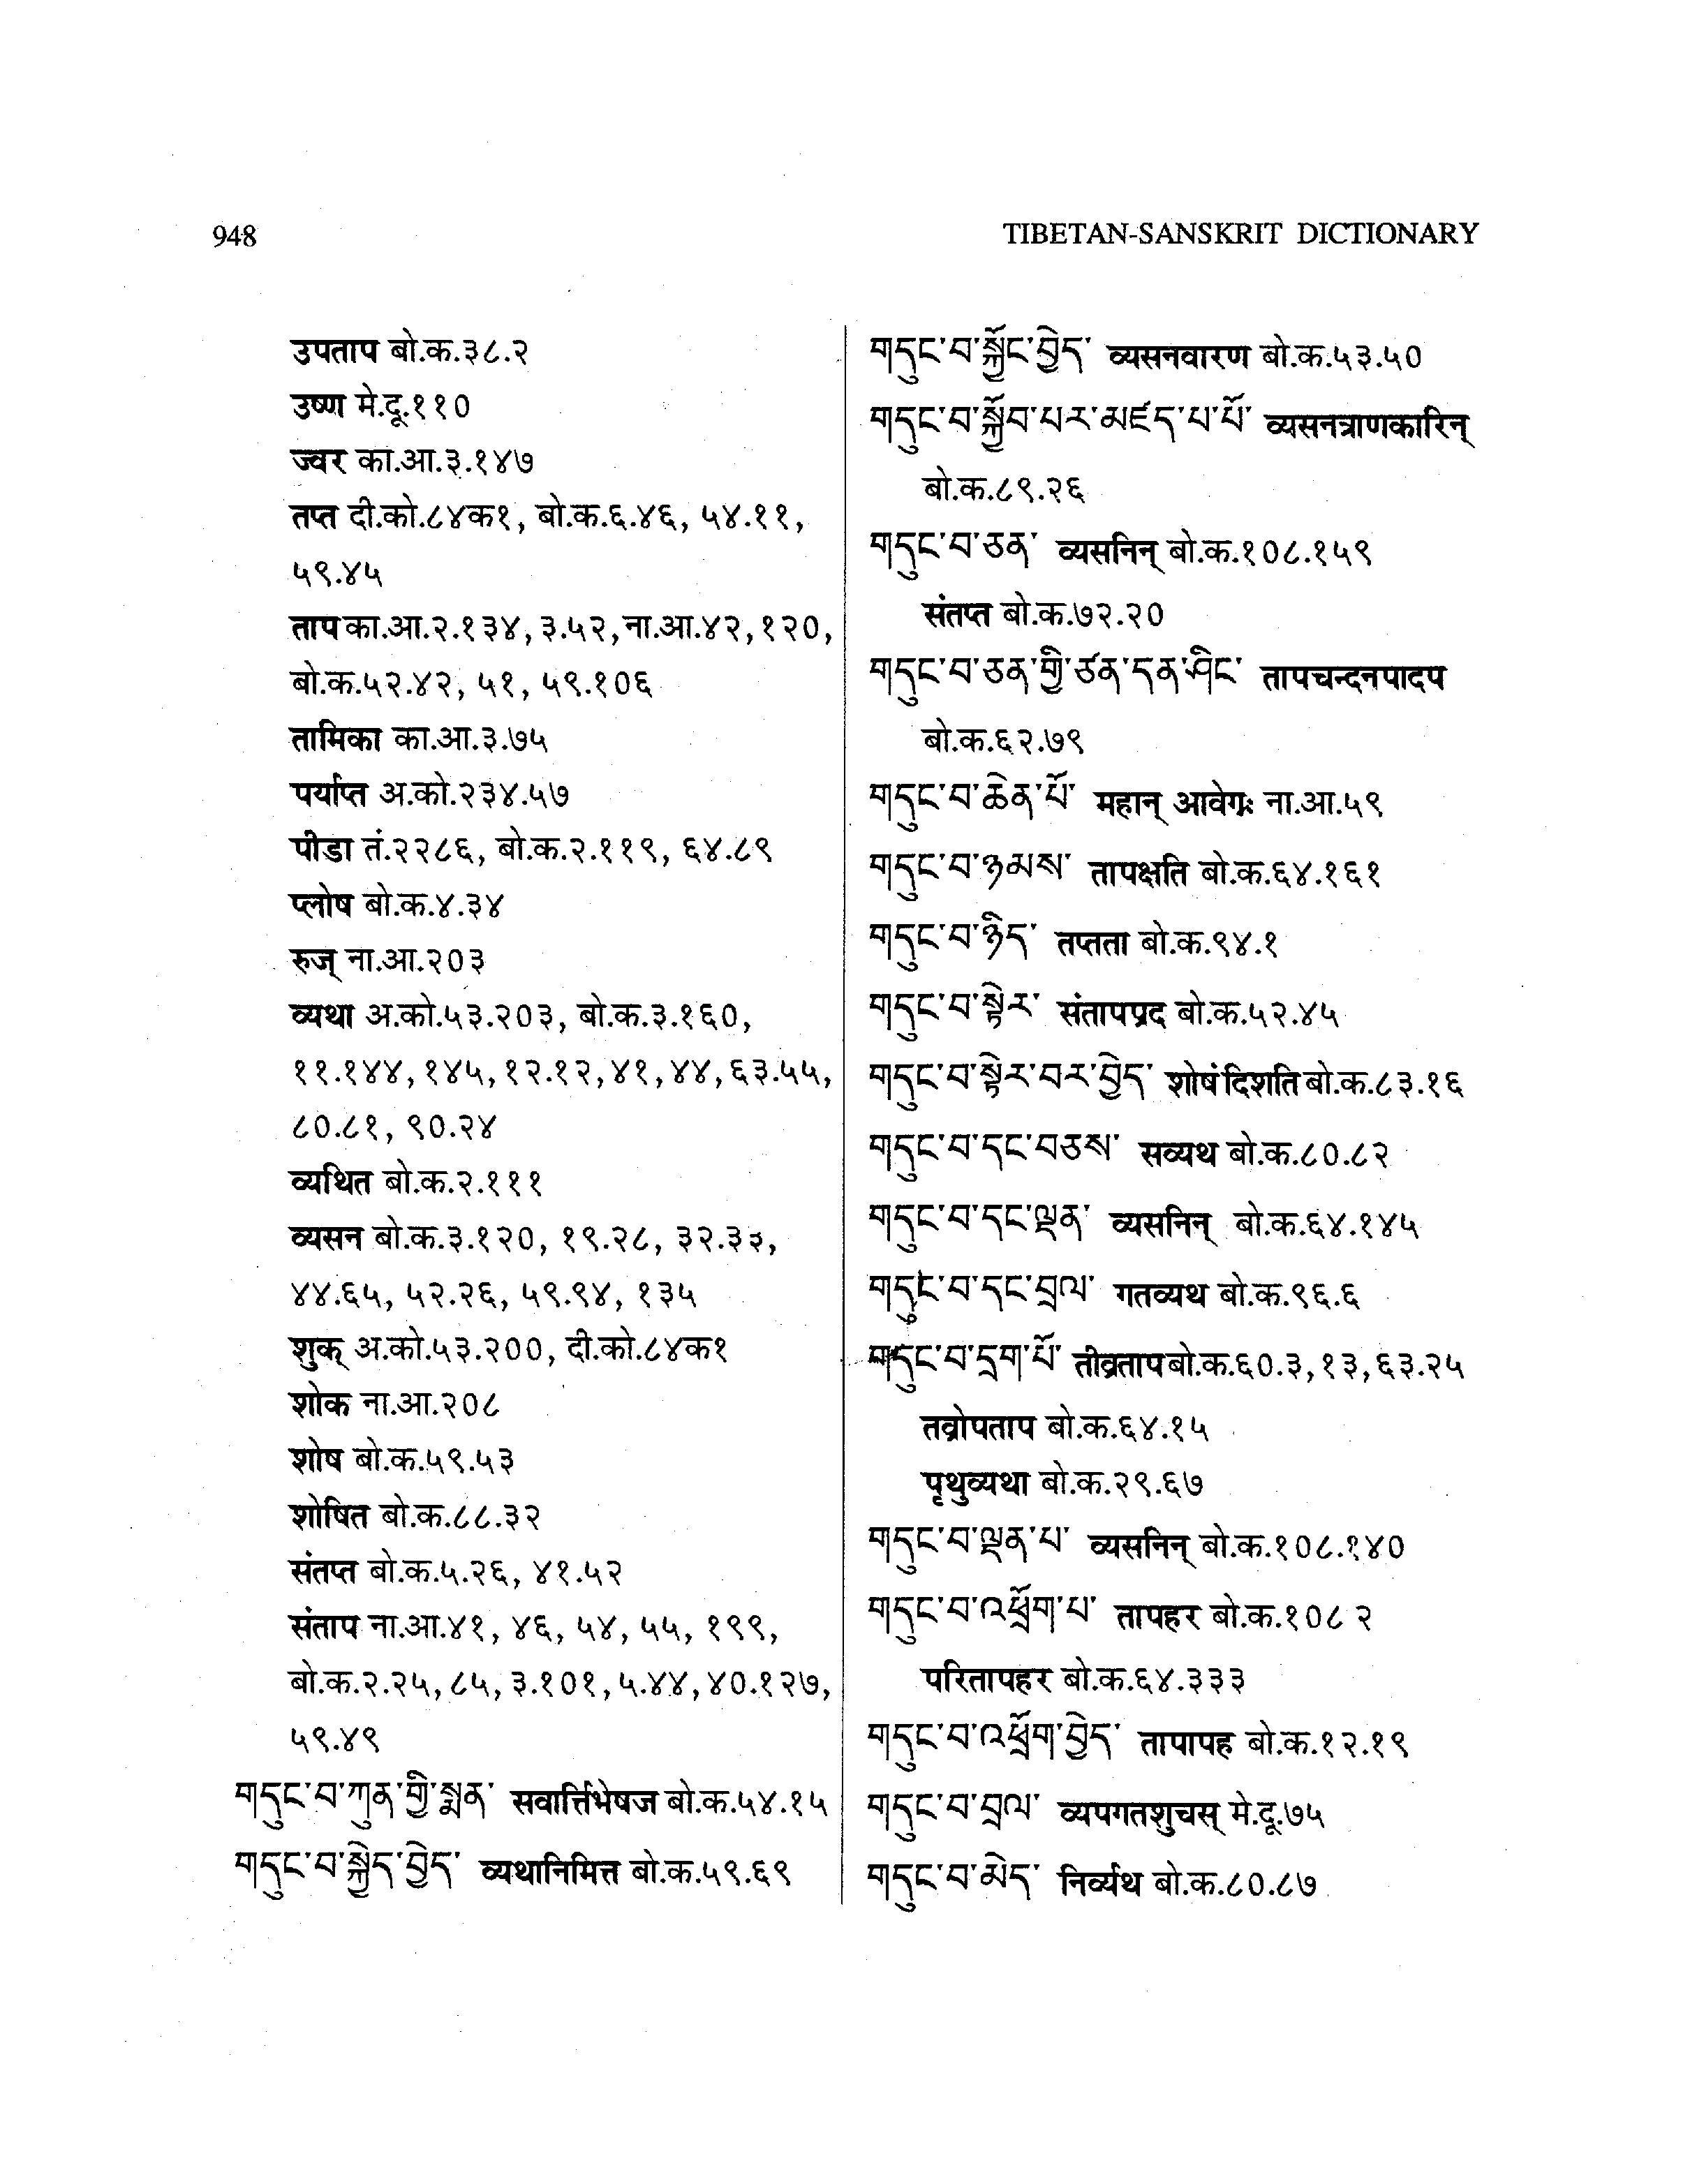 948
TIBETAN-SANSKRIT DICTIONARY
उपताप बो.क.३८.२
उष्ण मे.दू.११०
ज्वर का.आ.३.१४७
तप्त दी.को.८४क१, बो.क.६.४६, ५४.११,
५९.४५
ताप का.आ.२.१३४, ३.५२, ना.आ.४२, १२०,
बो.क.५२.४२, ५१, ५९.१०६
तामिका का.आ.३.७५
पर्याप्त अ.को.२३४.५७
पीडा तं.२२८६, बो.क.२.११९, ६४.८९
प्लोष बो.क.४.३४
रुज् ना.आ.२०३
व्यथा अ.को.५३.२०३, बो.क.३.१६०,
११.१४४, १४५, १२.१२, ४१, ४४, ६३.५५,
८०.८१, ९०.२४
व्यथित बो.क.२.१११
व्यसन बो.क.३.१२०, १९.२८, ३२.३३,
४४.६५, ५२.२६, ५९.९४, १३५
शुक् अ.को.५३.२००, दी.को.८४क१
शोक ना.आ.२०८
शोष बो.क.५९.५३
शोषित बो.क.८८.३२
संतप्त बो.क.५.२६, ४१.५२
संताप ना.आ.४१, ४६, ५४, ५५, १९९,
बो.क.२.२५, ८५, ३.१०१, ५.४४, ४०.१२७,
५९.४९
གདུང་བ་ཀུན་གྱི་སྨན་ सवार्त्तिभेषज बो.क.५४.१५
གདུང་བ་སྐྱེད་བྱེད་ व्यथानिमित्त बो.क.५९.६९
གདུང་བ་སྐྱོང་བྱེད་ व्यसनवारण बो.क.५३.५०
གདུང་བ་སྐྱོབ་པར་མཛད་པ་པོ་ व्यसनत्राणकारिन्
बो.क.८९.२६
གདུང་བ་ཅན་ व्यसनिन् बो.क.१०८.१५९
संतप्त बो.क.७२.२०
གདུང་བ་ཅན་གྱི་ཙན་དན་ཤིང་ तापचन्दनपादप
बो.क.६२.७९
གདུང་བ་ཆེན་པོ་ महान् आवेगः ना.आ.५९
གདུང་བ་ཉམས་ तापक्षति बो.क.६४.१६१
གདུང་བ་ཉིད་ तप्तता बो.क.९४.१
གདུང་བ་སྟེར་ संतापप्रद बो.क.५२.४५
གདུང་བ་སྟེར་བར་བྱེད་ शोषं दिशति बो.क.८३.१६
གདུང་བ་དང་བཅས་ सव्यथ बो.क.८०.८२
གདུང་བ་དང་ལྡན་ व्यसनिन् बो.क.६४.१४५
གདུང་བ་དང་བྲལ་ गतव्यथ बो.क.९६.६
གདུང་བ་དྲག་པོ་ तीव्रताप बो.क.६०.३, १३, ६३.२५
तव्रोपताप बो.क.६४.१५
पृथुव्यथा बो.क.२९.६७
གདུང་བ་ལྡན་པ་ व्यसनिन् बो.क.१०८.१४०
གདུང་བ་འཕྲོག་པ་ तापहर बो.क.१०८ २
परितापहर बो.क.६४.३३३
གདུང་བ་འཕྲོག་བྱེད་ तापापह बो.क.१२.१९
གདུང་བ་བྲལ་ व्यपगतशुचस् मे.दू.७५
གདུང་བ་མེད་ निर्व्यथ बो.क.८०.८७